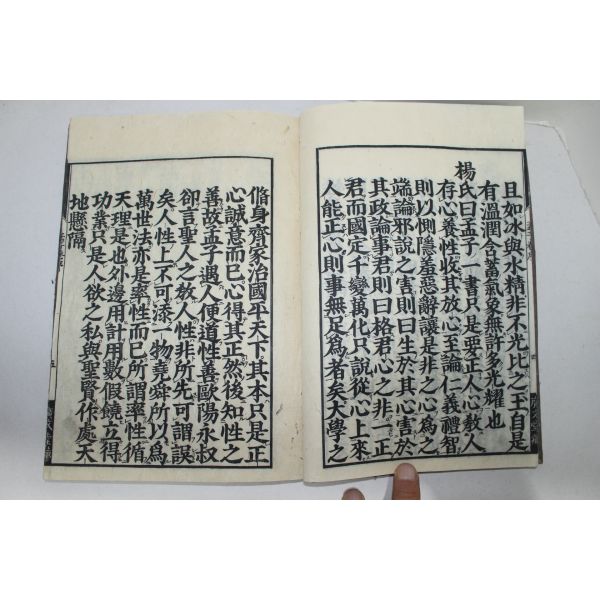 且如冰與水精非不光比之玉自是
有溫潤含蓄氣象無許多光耀也
楊氏曰孟子一書只是要正人心敎人
存心養性收其放心至論仁義禮智
則以惻隱羞惡辭讓是非之心爲之
端論邪說之害則曰生於其心害於
其政論事君則曰格君心之非一正
君而國定千變萬化只說從心上來
人能正心則事無足爲者矣大學之
脩身齊家治國平天下其本只是正
心誠意而已心得其正然後知性之
善故孟子遇人便道性善歐陽永叔
卻言聖人之敎人性非所先可謂誤
矣人性上不可漆一物堯舜所以爲
萬世法亦是率性而已所謂率性循
天理是也外邊用計用數假饒立得
功業只是人欲之私與聖賢作處天
地懸隔